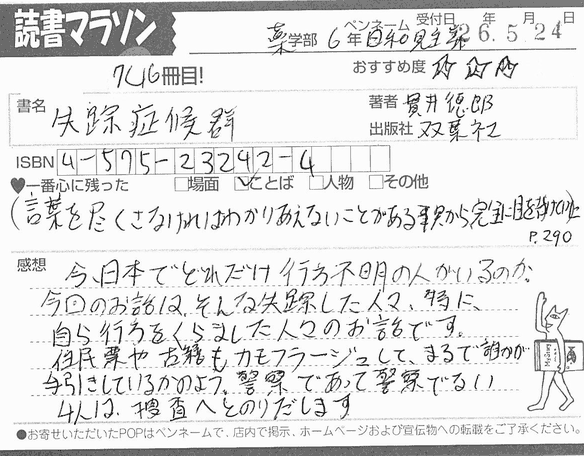 読書マラソン
薬学部 6年 ペンネーム 日和見主義 受付日 26年5月24日
716冊目! おすすめ度 ☆☆☆
書名 失踪症候群
著者 貫井徳郎
出版社 双葉社
ISBN 4-575-23242-4
♥一番心に残った □場面 ☑ことば □人物 □その他
(言葉を尽くさなければわかりあえないことがある事実から完全に目を背けていた
P.290
感想
今、日本でどれだけ行方不明の人がいるのか。
今回のお話は、そんな失踪した人々、特に、
自ら行方をくらました人々のお話です。
住民票や古籍もカモフラージュして、まるで誰かが
手引しているかのよう。警察であって警察でない
4人は、捜査へとのりだします
●お寄せいただいたPOPはペンネームで、店内で掲示、ホームページおよび宣伝物への転載をご了承ください。